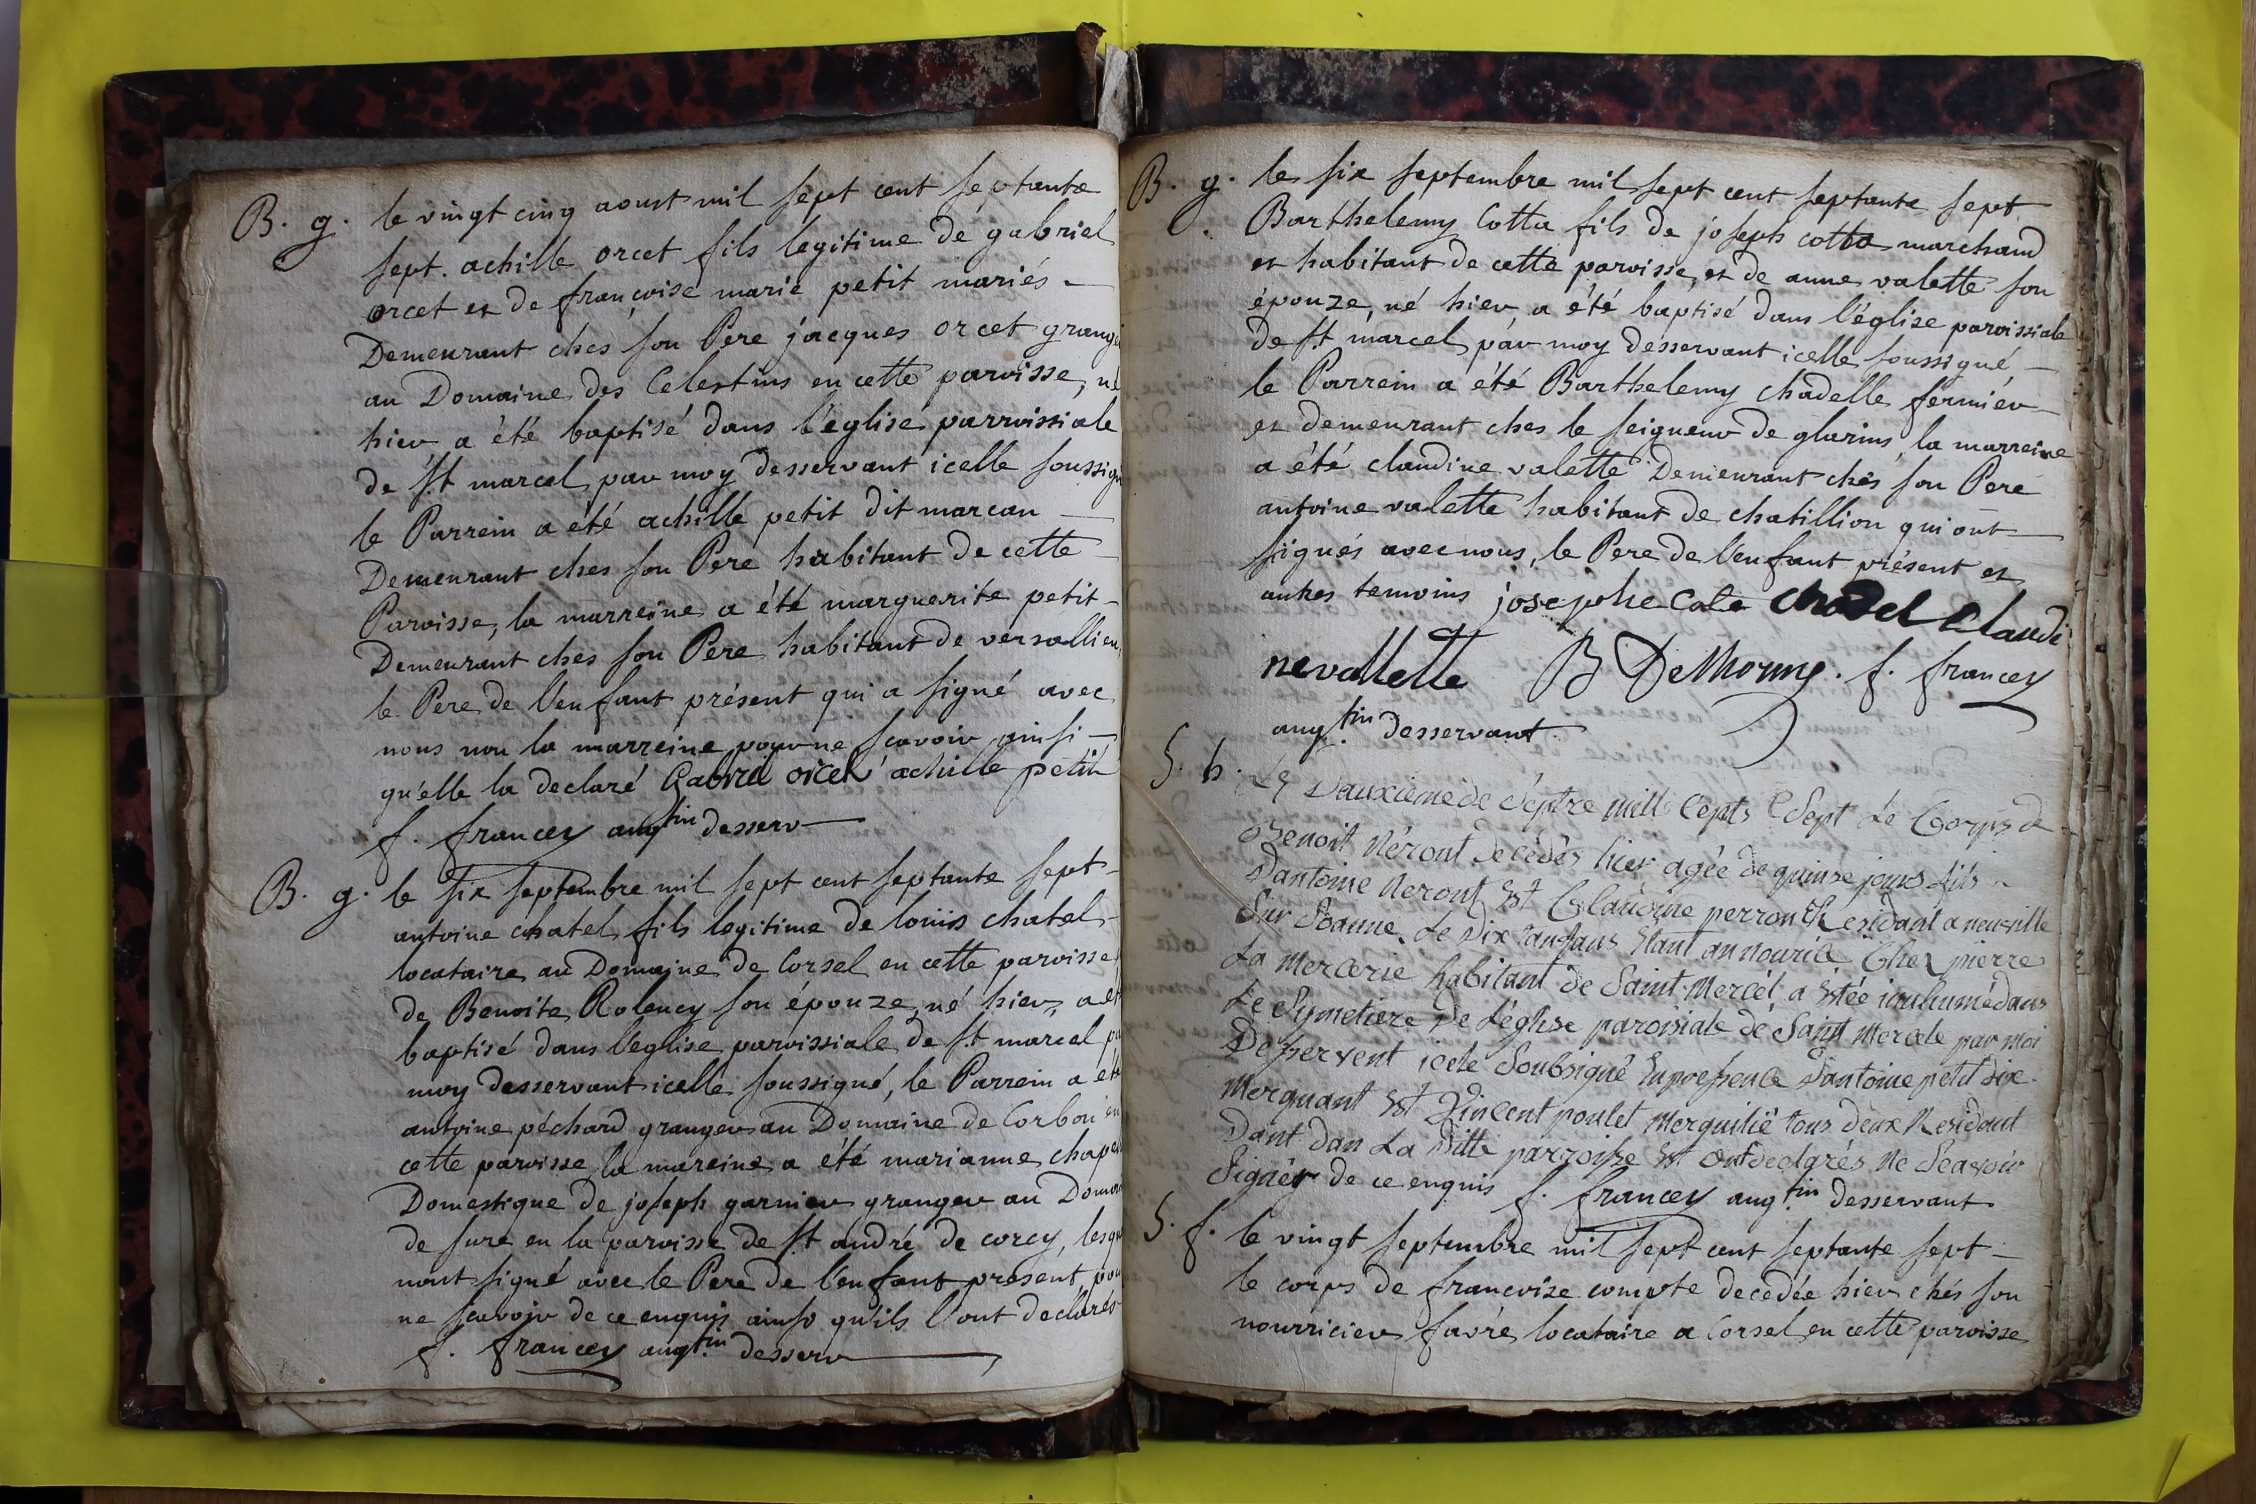 B. g. le vingt cinq aoust mil sept cent septante
sept. achille orcet fils legitime de gabriel
orcet et de françoise marie petit mariés
Demeurant ches son Pere jacques orcet grangé
au Domaine des Celestins en cette paroisse, né
hier a été baptisé dans l'église parroissiale
de st marcel par moy desservant icelle soussigné
le Parrein a été achille petit dit marcan
Demeurant ches son Pere habitant de cette
Paroisse, la marreine a été marguerite petit
Demeurant ches son Pere habitant de versallieu,
le Pere de l'enfant présent qui a signé avec
nous non la marreine pour ne scavoir ainsi
qu'elle la declaré Gabriel orcel achille petit
f. francey augtin desserv
B. g. le six septembre mil sept cent septante sept
antoine chatel fils legitime de louis chatel
locataire au Domaine de Corsel en cette paroisse
de Benoite Rolency son épouze, né hier, a été
baptisé dans l'eglise paroissiale de st marcel par
moy desservant icelle soussigné, le Parrein a été
antoine péchard granger au Domaine de Corbou en
cette paroisse la mareine a été marianne
Domestique de joseph garnier granger au
de sure en la paroisse de st andré de corcy,
nont signé avec le Pere de l'enfant present pour
ne scavoir de ce enquis ainsy qu'ils l'ont declarés
f. francey augtin desserv
B. g. le six septembre mil sept cent septante sept
Barthelemy Cotta fils de joseph cotta marchand
et habitant de cette paroisse, et de anne valette son
épouze, né hier, a été baptisé dans l'église paroissiale
de st marcel par moy desservant icelle soussigné
le Parrein a été Barthelemy chadelle fermier
et demeurant ches le seigneur de glarins, la marreine
a été claudine valette Demeurant chés son Pere
antoine valette habitant de chatillion qui ont
signés avec nous, le Pere de l'enfant présent et
autres temoins josephe Cota chadel Claudi
ne vallette B DeThorny. f. francey
augtin desservant
S. b. Le Dauxieme de Septre mill Cepts Sept Le Corps d
Benoit Néront decedés hier agée de quinse jours fils
Dantoine Neront Et Claudine perron Residant a neuville
Sur Soanne. Le Dix anfans Etant an nourice Chez pierre
La Mercerie habitant de Saint Mercel, a Estée innhumé dans
Le Symetiere De L'église paroisiale de Saint Mercele par Moi
Deservent icele Soubsigné En presence Dantoine petit dix
Merquant Et Vincent poulet Merguilié tous deux Residant
Dant dan La Ditte parroisse Et ont declarés Ne Scavoir
Signér de ce enquis f. francey augtin desservant
S. f. le vingt septembre mil sept cent septante sept
le corps de francoise compte decedée hier chés son
nourricier favre locataire a Corsel en cette paroisse